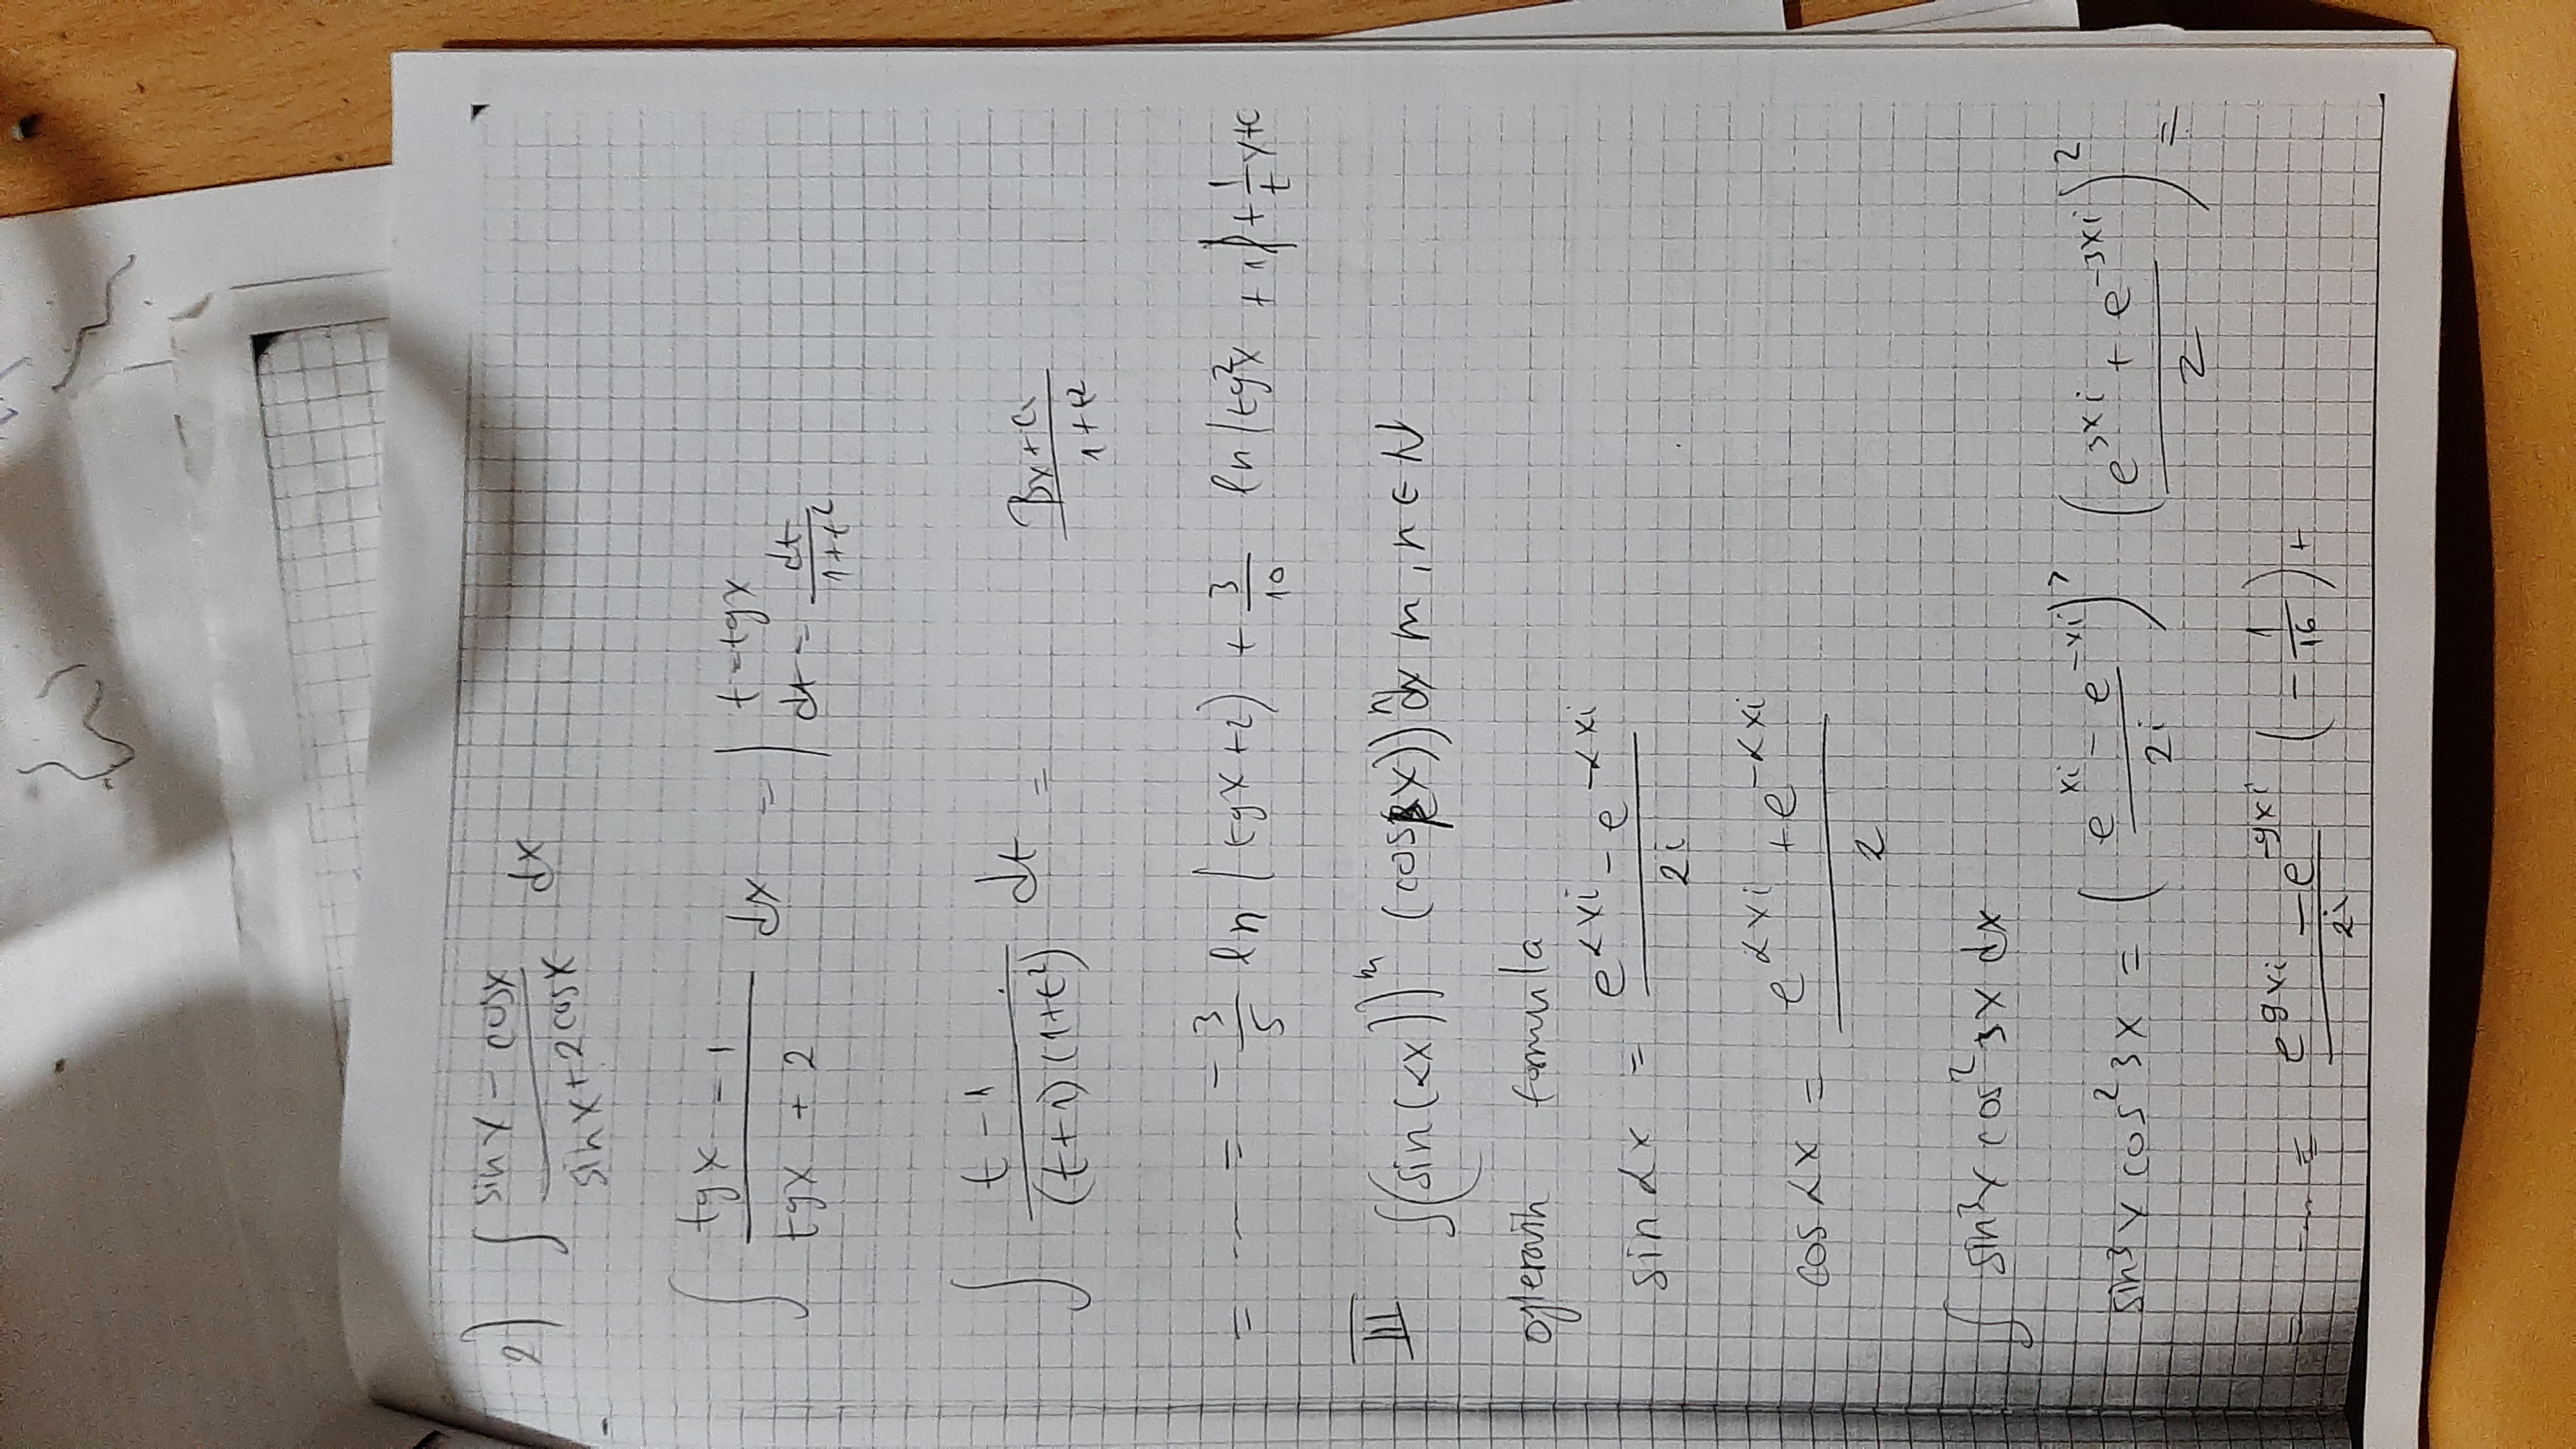 2) ∫ (sin x - cos x)/(sin x + 2cos x) dx
∫ (tg x - 1)/(tg x + 2) dx = | t = tg x
dt = dt/(1+t²)
∫ (t - 1)/((t+1)(1+t²)) dt = (Bx + C)/(1+t²)
= ... = - 3/5 ln |tg x + 2) + 3/10 ln |tg²x + 1| + 1/t x + c
III ∫(sin(αx))^m (cos(βx))^n dx m, n ∈ N
formula
sin αx = (e^(αxi) - e^(-αxi))/2i
cos αx = (e^(αxi) + e^(-αxi))/2
∫ sin³x cos²3x dx
sin³x cos²3x = ((e^(xi) - e^(-xi))/2i)³ ((e^(3xi) + e^(-3xi))/2)² =
= ... = (e^(9xi) - e^(-9xi))/2i (- 1/16) +